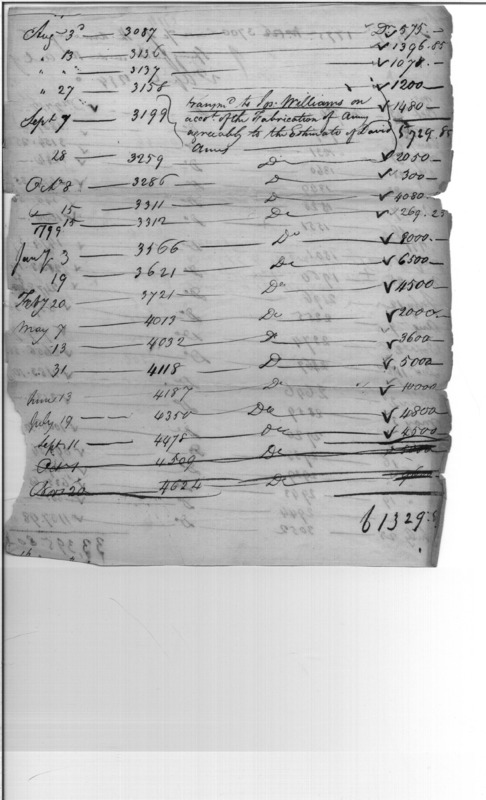 Augt 3d — 3087 — Do 575.—
" 13 — 3136 — 1396.85
" " — 3137 — 1078.—
" 27 — 3158 — 1200—
Sept 7 — 3199 { transmd to Jos. Williams on accot of the Fabrication of Arms agreeably to the Estimate of David Ames } 1480—
5,729.85
28 — 3259 — Do — 2050—
Octr 8 — 3286 — Do — 300—
" 15 — 3311 — Do — 4080—
" 15 — 3312 — Do — 269.25
1799
Jany 3 — 3566 — Do — 8000—
19 — 3621 — Do — 6500
Feby 20 — 3721 — Do — 4500
May 7 — 4013 — Do — 2000
13 — 4032 — Do — 3600
31 — 4118 — Do — 5000
June 13 — 4187 — Do — 10000
July 19 — 4350 — Do — 4800
Sept 11 — 4478 — Do — 4500
Oct 1 — 4509 — Do
20 — 4624 — Do
61329